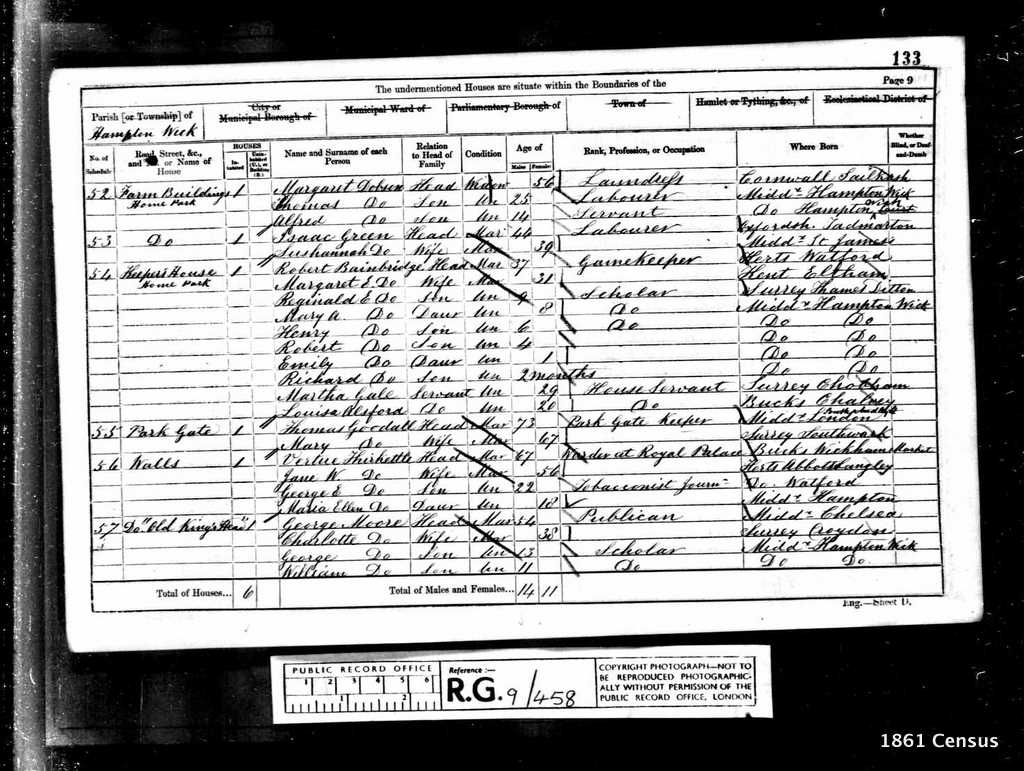 133
The undermentioned Houses are situate within the Boundaries of the Page 9
Parish [or Township] of City or Municipal Borough of Municipal Ward of Parliamentary Borough of Town of Hamlet or Tything, &c., of Ecclesiastical District of
Hampton Wick
No. of Schedule Road, Street, &c., and No. or Name of House HOUSES Inhabited Uninhabited (U.), or Building (B.) Name and Surname of each Person Relation to Head of Family Condition Age of Males Females Rank, Profession, or Occupation Where Born Whether Blind, or Deaf-and-Dumb
52 Farm Buildings Home Park 1 Margaret Dobson Head Widow 56 Laundress Cornwall Saltash
Thomas Do Son Un 25 Labourer Middx Hampton Wick
Alfred Do Son Un 14 Servant Do Hampton Wick
53 Do 1 Isaac Green Head Mar 44 Labourer Oxfordsh Tadmarton
Sushannah Do Wife Mar 39 Middx St James
54 Keepers House Home Park 1 Robert Bainbridge Head Mar 37 Gamekeeper Herts Watford
Margaret E Do Wife Mar 31 Kent Eltham
Reginald E Do Son Un 9 Scholar Surrey Thames Ditton
Mary A Do Daur Un 8 Do Middx Hampton Wick
Henry Do Son Un 6 Do Do Do
Robert Do Son Un 4 Do Do
Emily Do Daur Un 1 Do Do
Richard Do Son Un 2 months Do Do
Martha Gale Servant Un 29 House Servant Surrey Chobham
Louisa Alsford Do Un 20 Do Bucks Chalvey
55 Park Gate 1 Thomas Goodall Head Mar 73 Park Gate Keeper Middx London
Mary Do Wife Mar 67 Surrey Southwark
56 Walls 1 Vertue Thirkettle Head Mar 67 Warder at Royal Palace Bucks Wickham Market
Jane W. Do Wife Mar 56 Herts Abbots Langley
George E Do Son Un 22 Tobacconist Journ Do. Watford
Maria Ellen Do Daur Un 18 Middx Hampton
57 Do "Old King's Head" 1 George Moore Head Mar 54 Publican Middx Chelsea
Charlotte Do Wife Mar 38 Surrey Croydon
George Do Son Un 13 Scholar Middx Hampton Wick
William Do Son Un 11 Do Do Do.
Total of Houses... 6 Total of Males and Females... 14 11
Eng.—Sheet D.
PUBLIC RECORD OFFICE
1 2 3 4 5 6
1 2
Reference :—
R.G. 9/458
COPYRIGHT PHOTOGRAPH—NOT TO
BE REPRODUCED PHOTOGRAPHIC-
ALLY WITHOUT PERMISSION OF THE
PUBLIC RECORD OFFICE, LONDON
1861 Census